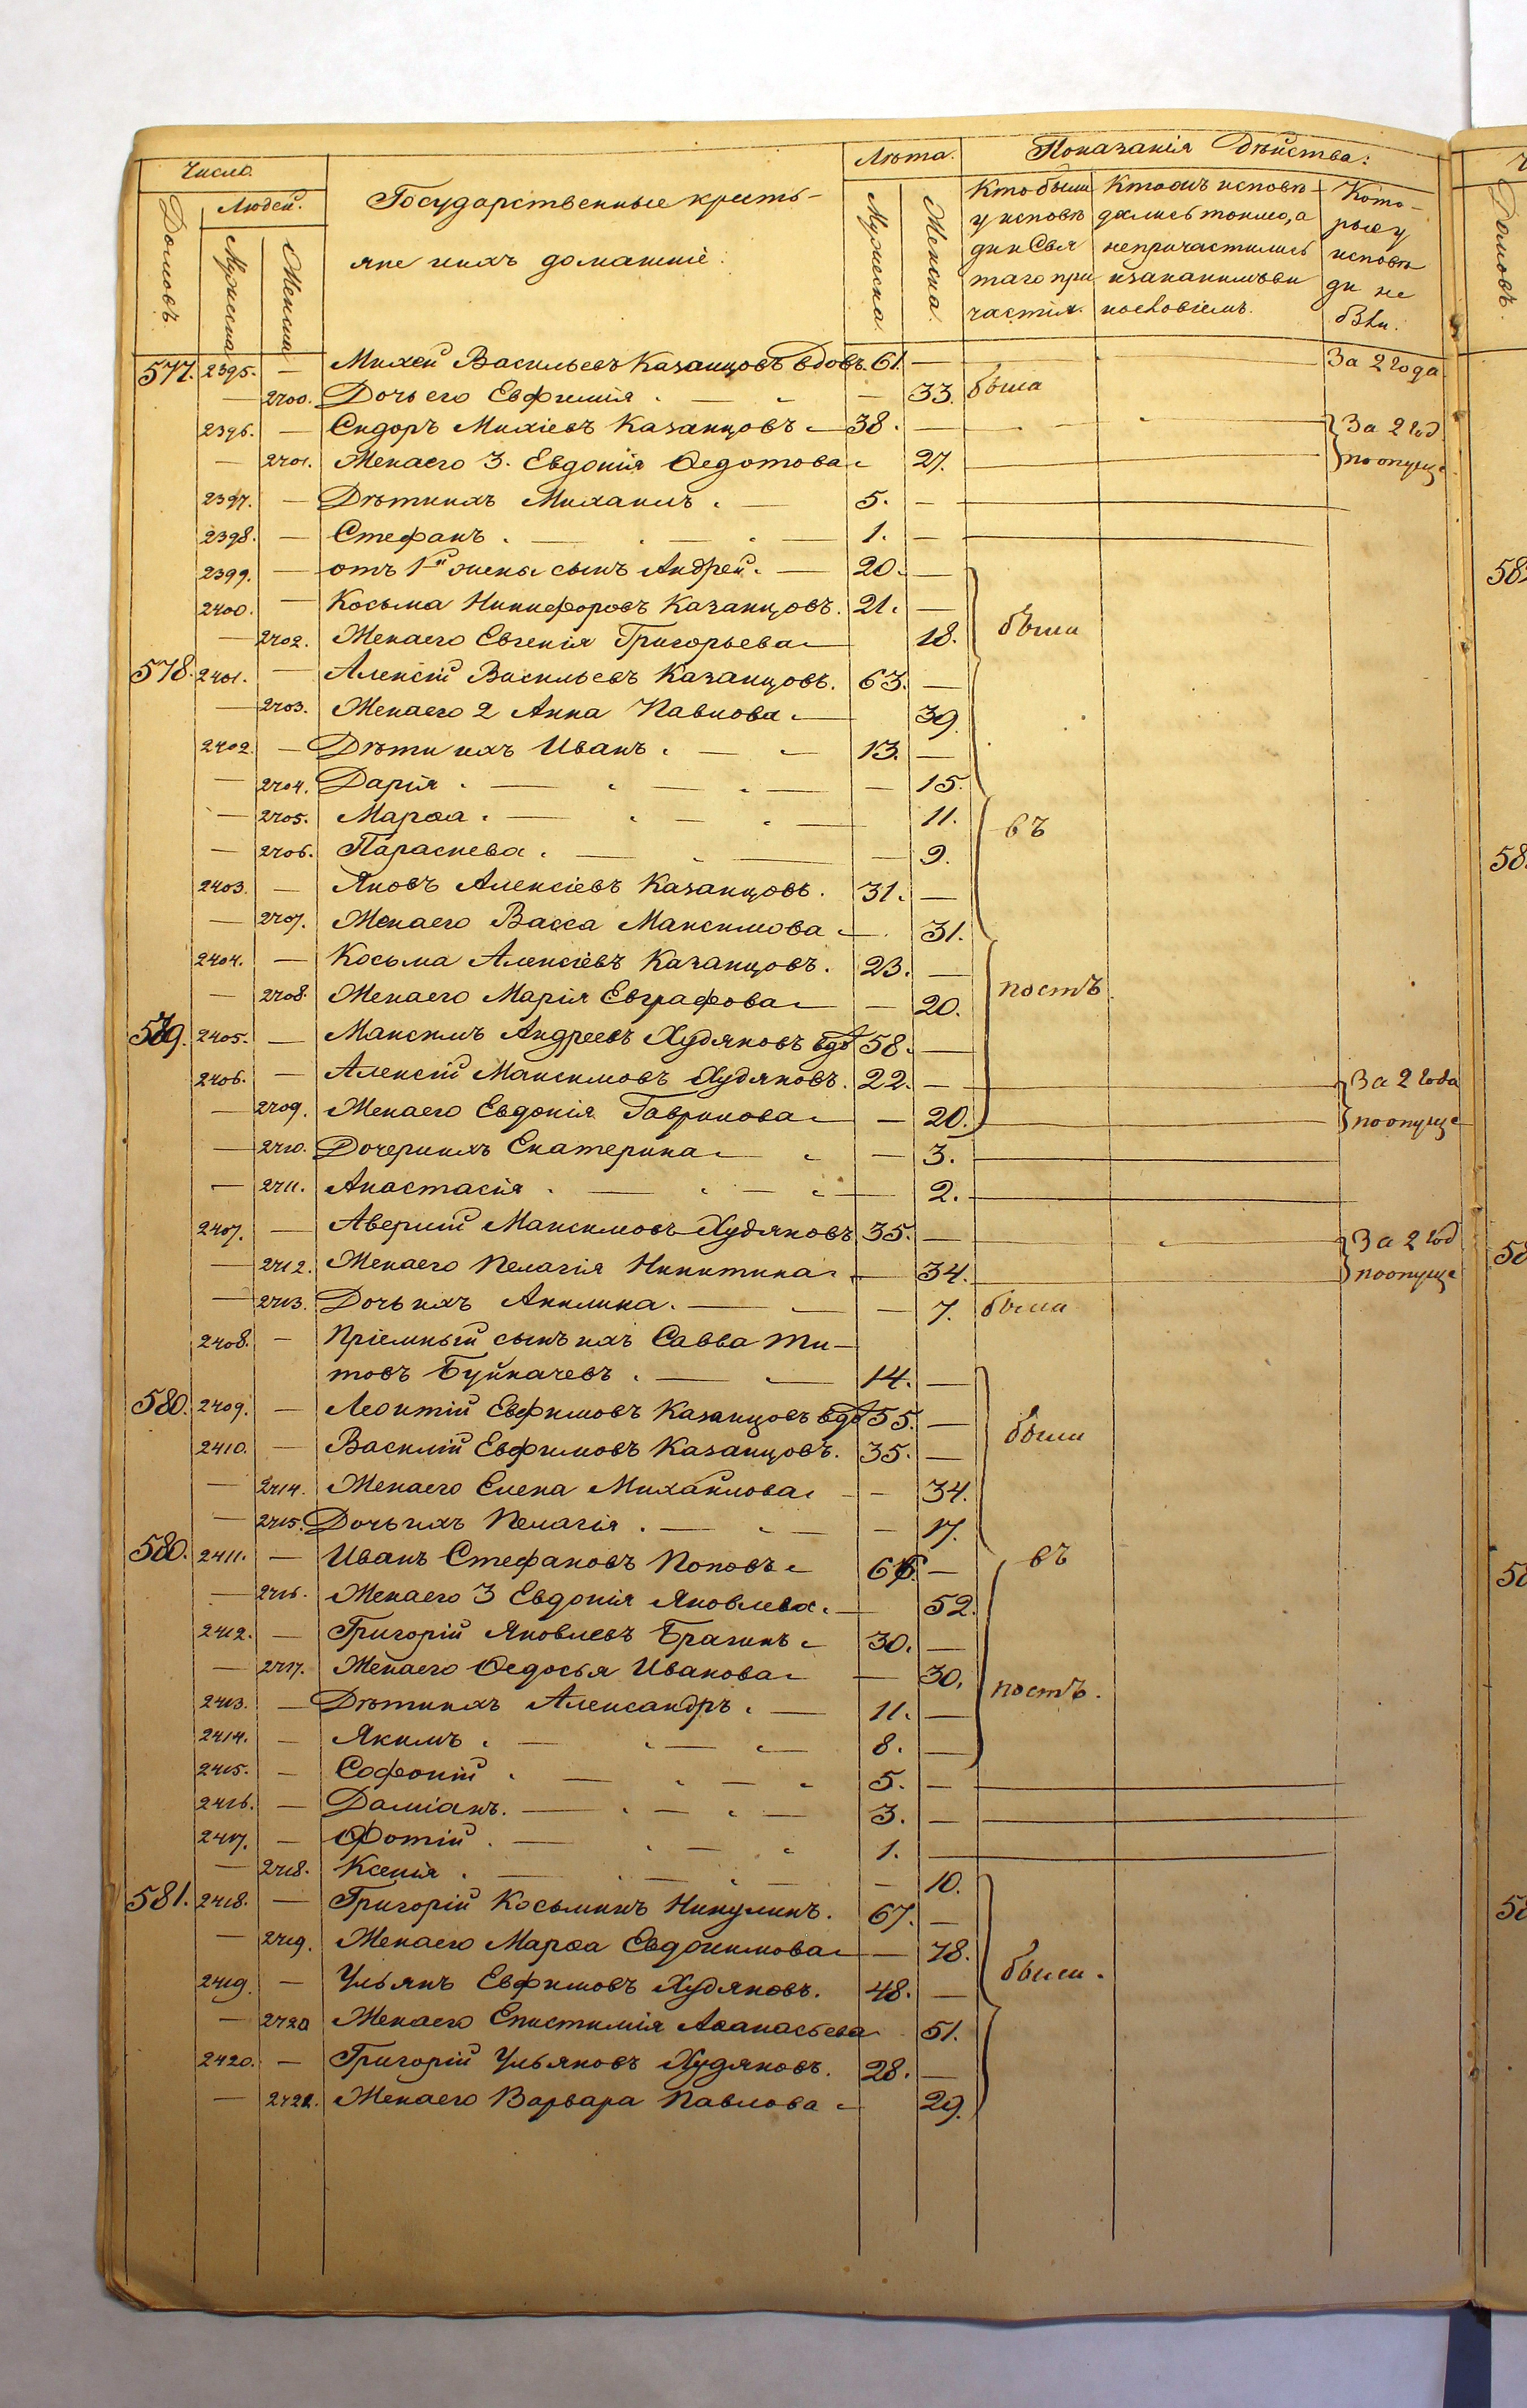 Число.
Людей.
Домовъ.
Мужеска
Женска
Государственные кресть-
яне ихъ домашніе:
Лѣта.
Мужеска
Женска.
Показанія дѣйства:
Кто были
у исповѣ
ди и Свя
таго при
частія.
Кто онъ исповѣ
дались токмо, а
непричастились
Кото-
рые у
исповѣ
ди не
577. 2395. — Михей Васильевъ Казанцовъ вдовъ. 61. — За 2 года
— 2700. Дочь его Евфимія — 33. была
2396. — Сидоръ Михіевъ Казанцовъ 38. — За 2 год.
— 2701. Жена его 3. Евдокія Ѳедотова 27. по опуще
2397. — Дѣти ихъ Михаилъ 5. —
2398. — Стефанъ 1. —
2399. — отъ 1й жены сынъ Андрей 20. —
2400. — Косьма Никифоровъ Казанцовъ. 21. —
— 2702. Жена его Евгенія Григорьева 18. были
578. 2401. — Алексій Васильевъ Казанцовъ. 63. —
— 2703. Жена его 2 Анна Павлова 39.
2402. — Дѣти ихъ Иванъ 13. —
— 2704. Дарія — 15.
— 2705. Марѳа 11. въ
— 2706. Параскева — 9.
2403. — Яковъ Алексіевъ Казанцовъ. 31. —
— 2707. Жена его Васса Максимова 31.
2404. — Косьма Алексіевъ Казанцовъ. 23. —
— 2708. Жена его Марія Евграфова — 20. постъ
579. 2405. — Максимъ Андреевъ Худяковъ вдв 58. —
2406. — Алексій Максимовъ Худяковъ. 22. — За 2 года
— 2709. Жена его Евдокія Гаврилова — 20. по опуще
— 2710. Дочери ихъ Екатерина — 3.
— 2711. Анастасія — 2.
2407. — Аверкій Максимовъ Худяковъ 35. — За 2 год
— 2712. Жена его Пелагія Никитина — 34. по опуще
— 2713. Дочь ихъ Акилина. — 7. были
2408. — Пріемный сынъ ихъ Савва Ти-
товъ Буйначевъ 14. —
580. 2409. — Леонтій Евфимовъ Казанцовъ вдв 55. —
2410. — Василій Евфимовъ Казанцовъ. 35. — были
— 2714. Жена его Елена Михайлова — 34.
— 2715. Дочь ихъ Пелагія — 17.
580. 2411. — Иванъ Стефановъ Поповъ 66. — въ
— 2716. Жена его 3 Евдокія Яковлева 52.
2412. — Григорій Яковлевъ Брагинъ 30. —
— 2717. Жена его Ѳедосья Иванова — 30. постъ.
2413. — Дѣти ихъ Александръ 11. —
2414. — Якимъ 8. —
2415. — Софоній 5. —
2416. — Даміанъ. 3. —
2417. — Фотій 1.
— 2718. Ксенія — 10.
581. 2418. — Григорій Косьминъ Никулинъ. 67. —
— 2719. Жена его Марѳа Евдокимова — 78.
2419. — Ульянъ Евфимовъ Худяковъ. 48. — были.
— 2720 Жена его Епистимія Аѳанасьева 51.
2420. — Григорій Ульяновъ Худяковъ. 28. —
— 2721. Жена его Варвара Павлова 29.